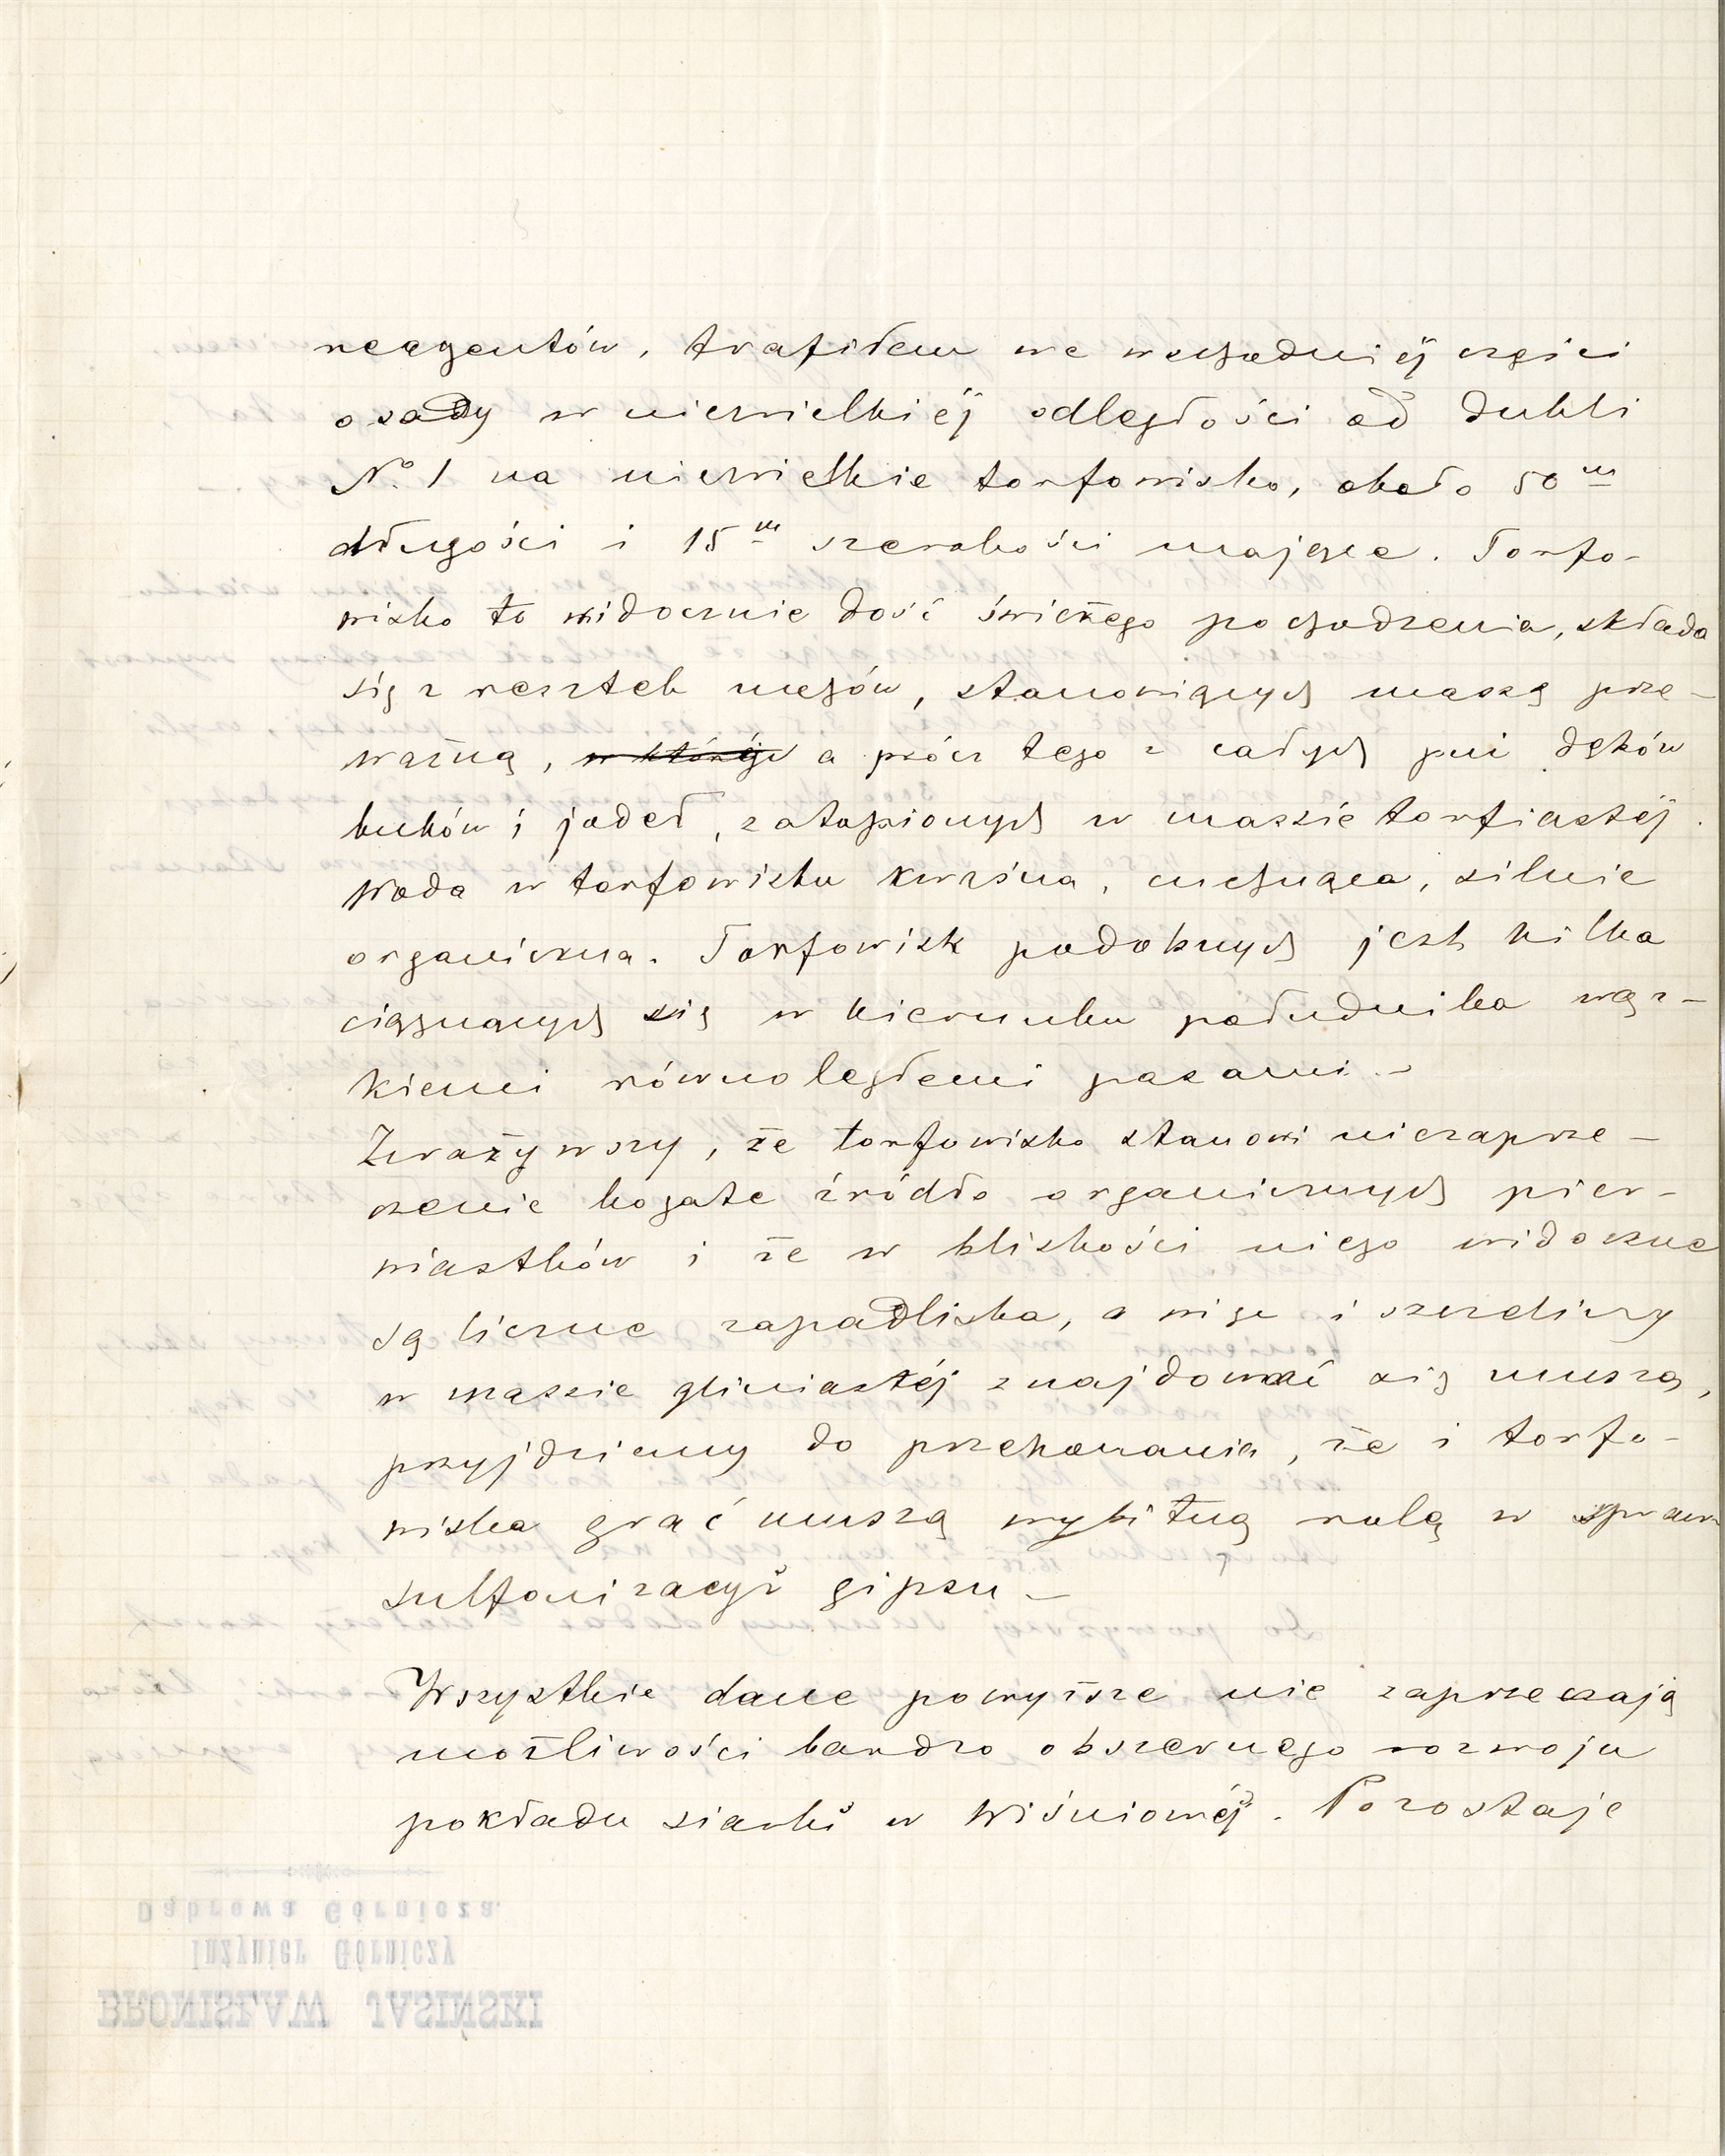 reagentów, trafiłem we wschodniéj części
osady w niewielkiéj odległości od dukli
№ 1 na niewielkie torfowisko, około 50 m
długości i 15 m szerokości mające. Torfo-
wisko to widocznie dość świeżego pochodzenia, składa
się z resztek mchów, stanowiących masę prze-
ważną, w któréj a prócz tego z całych pni dębów
buków i jodeł, zatopionych w massie torfiastéj.
Woda w torfowisku kwaśna, cuchnąca, silnie
organiczna. Torfowisk podobnych jest kilka
ciągnących się w kierunku południka wąz-
kiemi równoległemi pasami.-
Zważywszy, że torfowisko stanowi niezaprze-
czenie bogate źródło organicznych pier-
wiastków i że w blizkości niego widoczne
są liczne zapadliska, a więc i szczeliny
w massie gliniastéj znajdować się muszą,
przyjdziemy do przekonania, że i torfo-
wiska grać muszą wybitną rolę w spraw
sulfonizacyi gipsu -
Wszystkie dane powyższe nie zaprzeczają
możliwości bardzo obszernego rozwoju
pokładu siarki w Wiśniowéj. Pozostaje
Dąbrowa Górnicza.
Inżynier Górniczy
BRONISŁAW JASIŃSKI